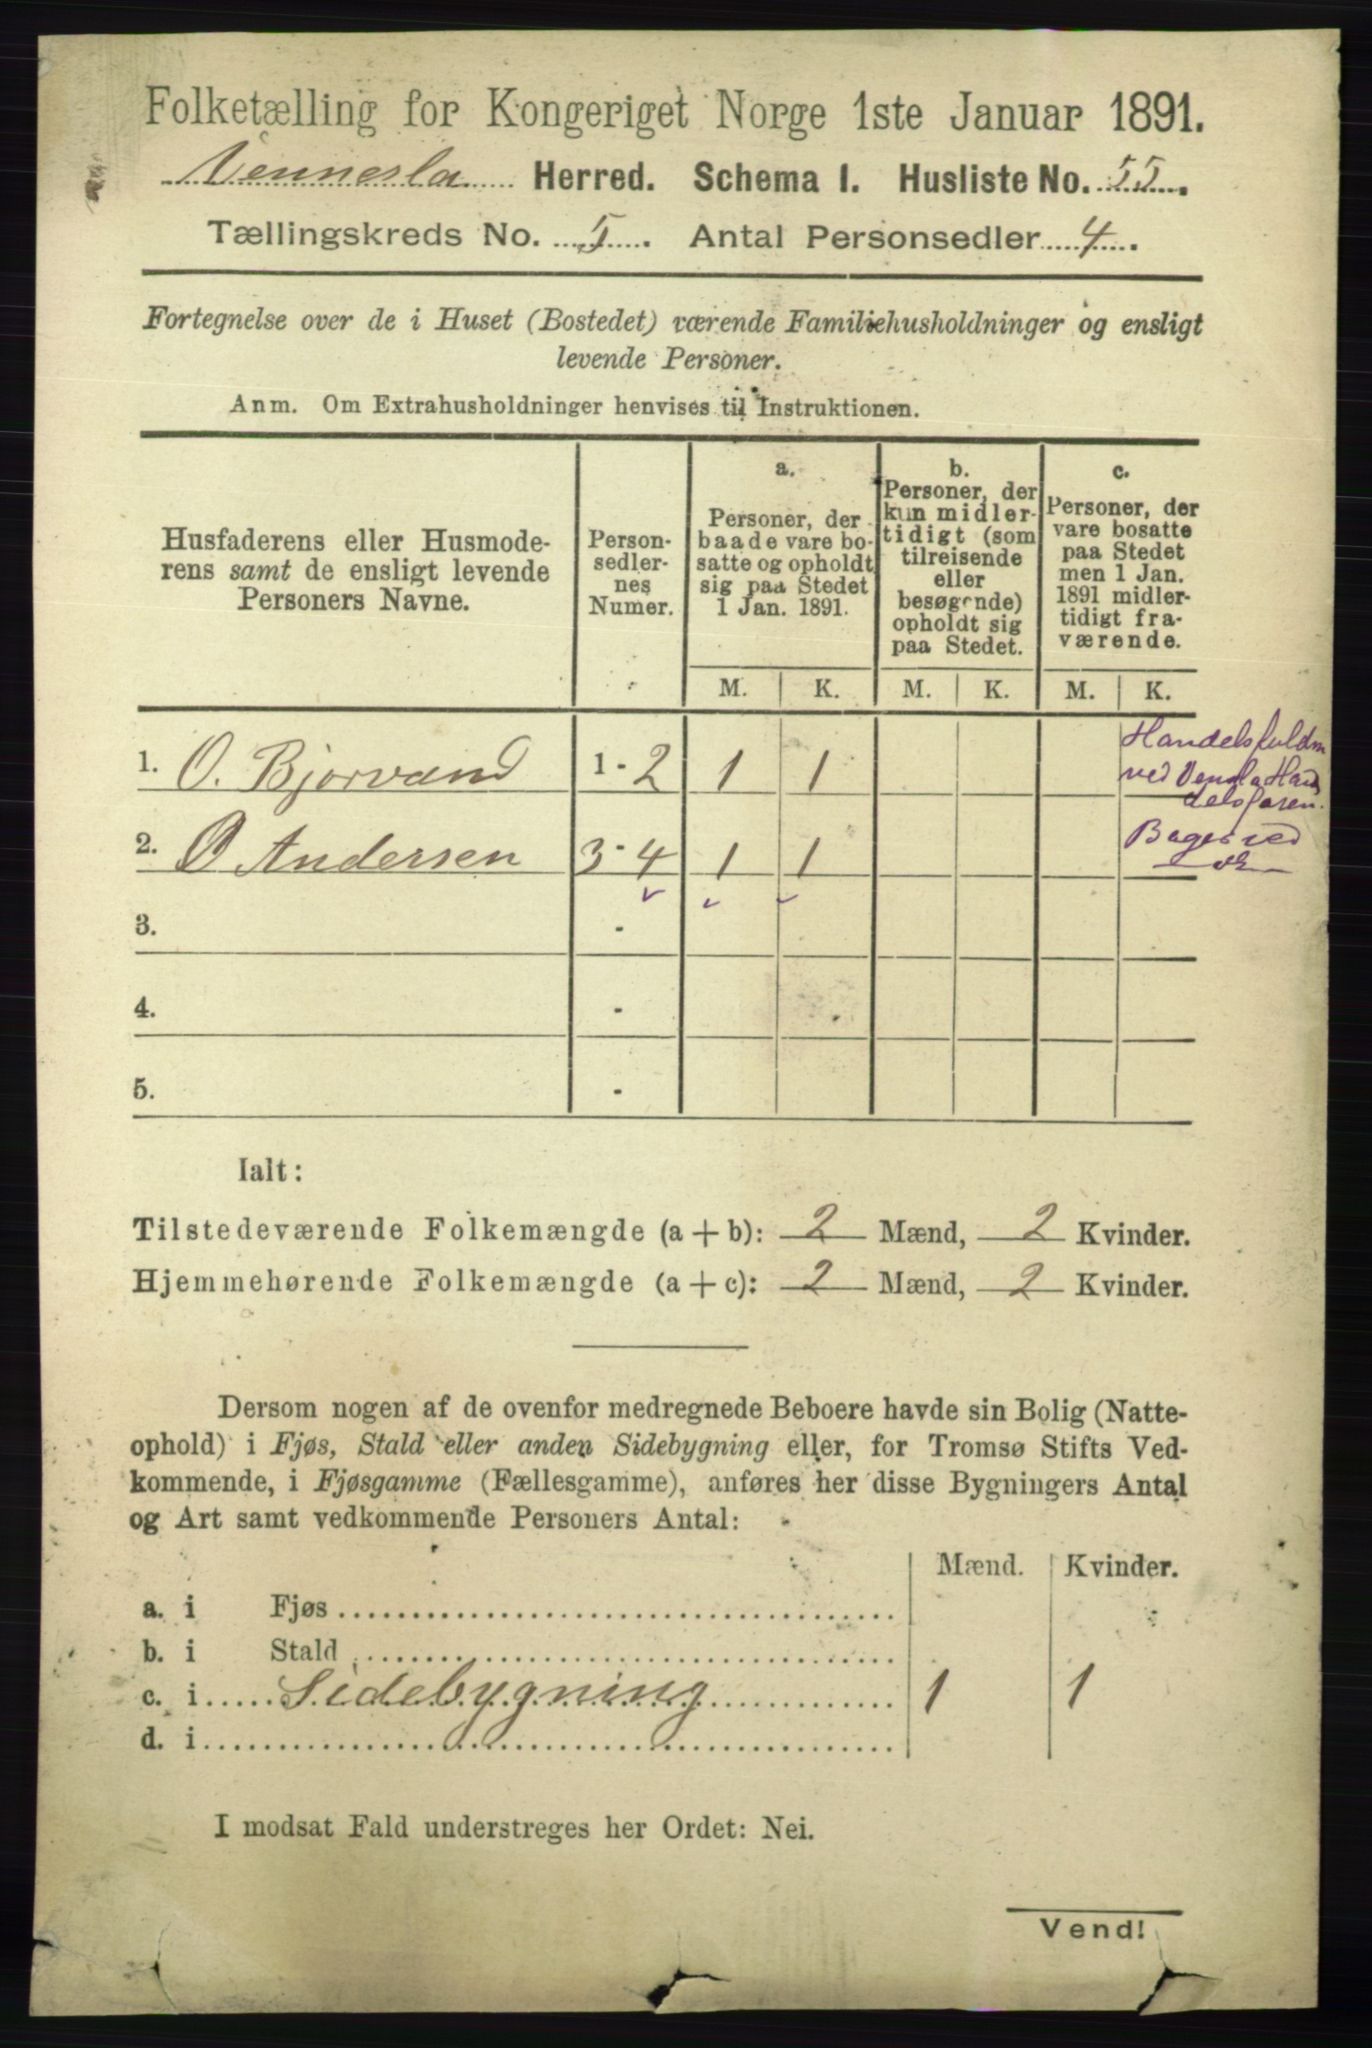 Folketælling for Kongeriget Norge 1ste Januar 1891.
Vennesla Herred. Schema I. Husliste No. 55.
Tællingskreds No. 5. Antal Personsedler 4.
Fortegnelse over de i Huset (Bostedet) værende Familiehusholdninger og ensligt
levende Personer.
Anm. Om Extrahusholdninger henvises til Instruktionen.
Husfaderens eller Husmode-
rens samt de ensligt levende
Personers Navne.
Person-
sedler-
nes
Numer.
a.
Personer, der
baade vare bo-
satte og opholdt
sig paa Stedet
1 Jan. 1891.
b.
Personer, der
kun midler-
tidigt (som
tilreisende
eller
besøgende)
opholdt sig
paa Stedet.
c.
Personer, der
vare bosatte
paa Stedet
men 1 Jan.
1891 midler-
tidigt fra-
værende.
M. K. M. K. M. K.
1. O. Bjorvand 1 - 2 1 1
Handelsfuldm
ved Vensla Han
delsforen.
2. O Andersen 3 - 4 1 1
Bager ved
do
3. -
4. -
5. -
Ialt:
Tilstedeværende Folkemængde (a + b): 2 Mænd, 2 Kvinder.
Hjemmehørende Folkemængde (a + c): 2 Mænd, 2 Kvinder.
Dersom nogen af de ovenfor medregnede Beboere havde sin Bolig (Natte-
ophold) i Fjøs, Stald eller anden Sidebygning eller, for Tromsø Stifts Ved-
kommende, i Fjøsgamme (Fællesgamme), anføres her disse Bygningers Antal
og Art samt vedkommende Personers Antal:
Mænd. Kvinder.
a. i Fjøs
b. i Stald
c. i Sidebygning 1 1
d. i
I modsat Fald understreges her Ordet: Nei.
Vend!